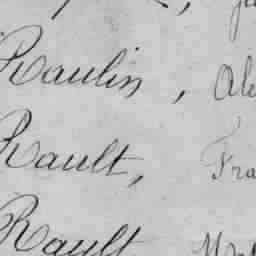 Raulin, Al
Rault, Fra
Rault